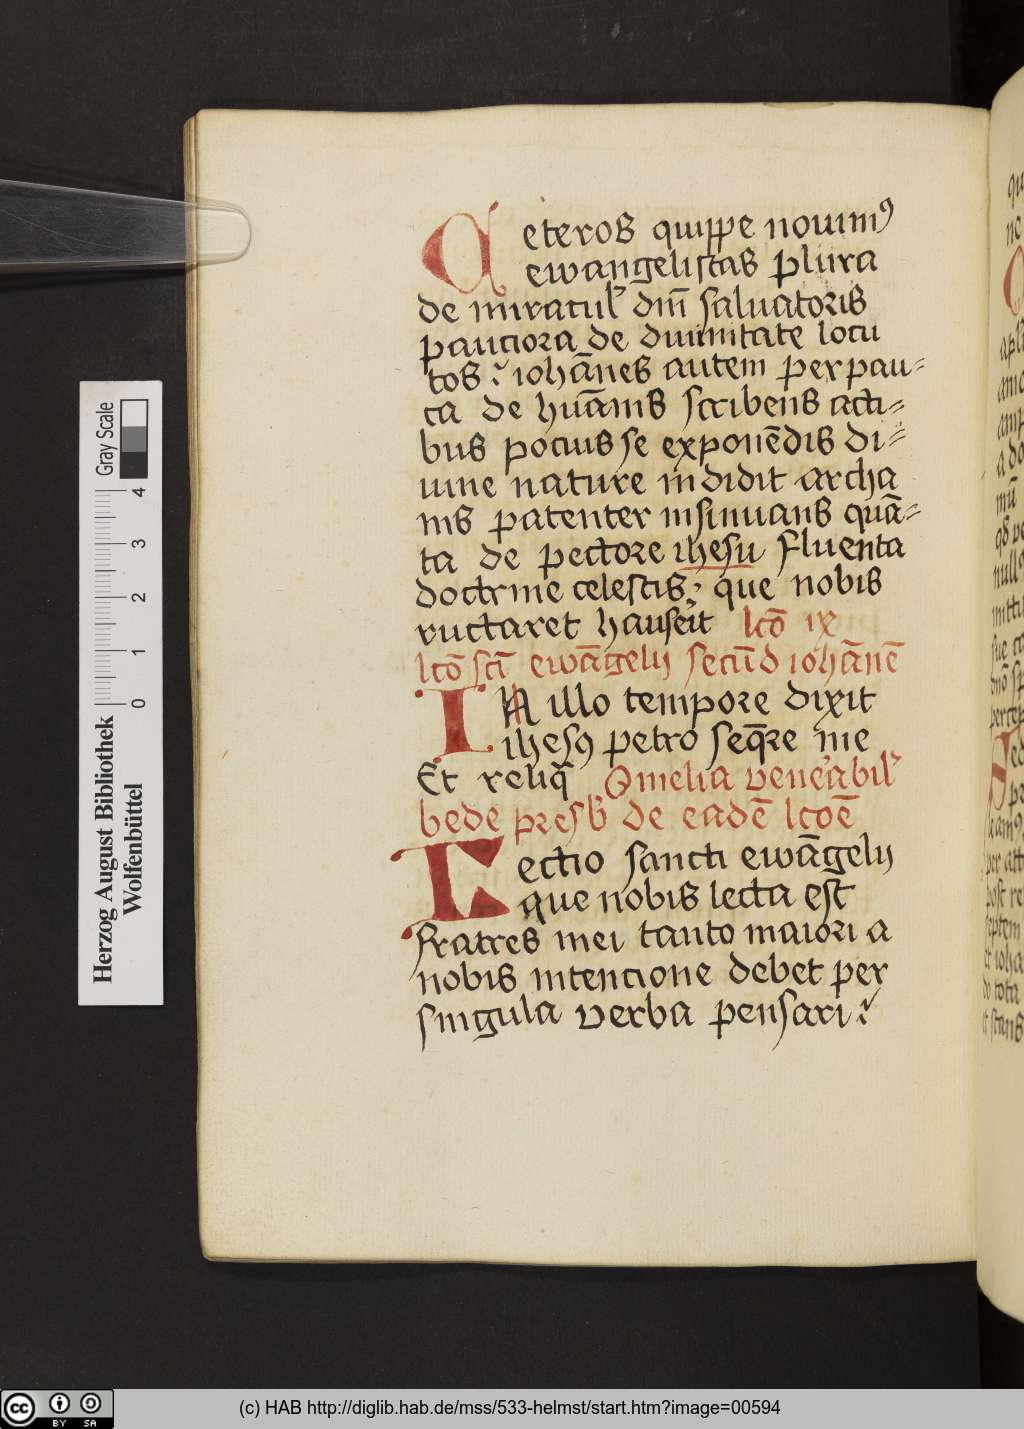 Ceteros quippe nouimꝰ
ewangelistas plura
de miracul' dn̄i saluatoris
pauciora de diuinitate locu
tos : iohānes autem per pau-
ca de huānis scribens acti-
bus pocius se exponēdis di-
uine nature indidit archa
nis patenter insinuans quā-
ta de pectore ihesu fluenta
doctrine celestis : que nobis
ructaret hauserit lc̄o ix
lc̄o sc̄i ewāgelij secūd iohānē
IN illo tempore dixit
ihesꝰ petro seq̄re me
Et reliq̄ Omelia venerabil'
bede presb' de eadē lc̄oē
Lectio sancti ewāgelij
que nobis lecta est
fratres mei tanto maiori a
nobis intencione debet per
singula verba pensari :
Herzog August Bibliothek
Wolfenbüttel
Gray Scale
0 1 2 3 4
cc BY SA
(c) HAB http://diglib.hab.de/mss/533-helmst/start.htm?image=00594